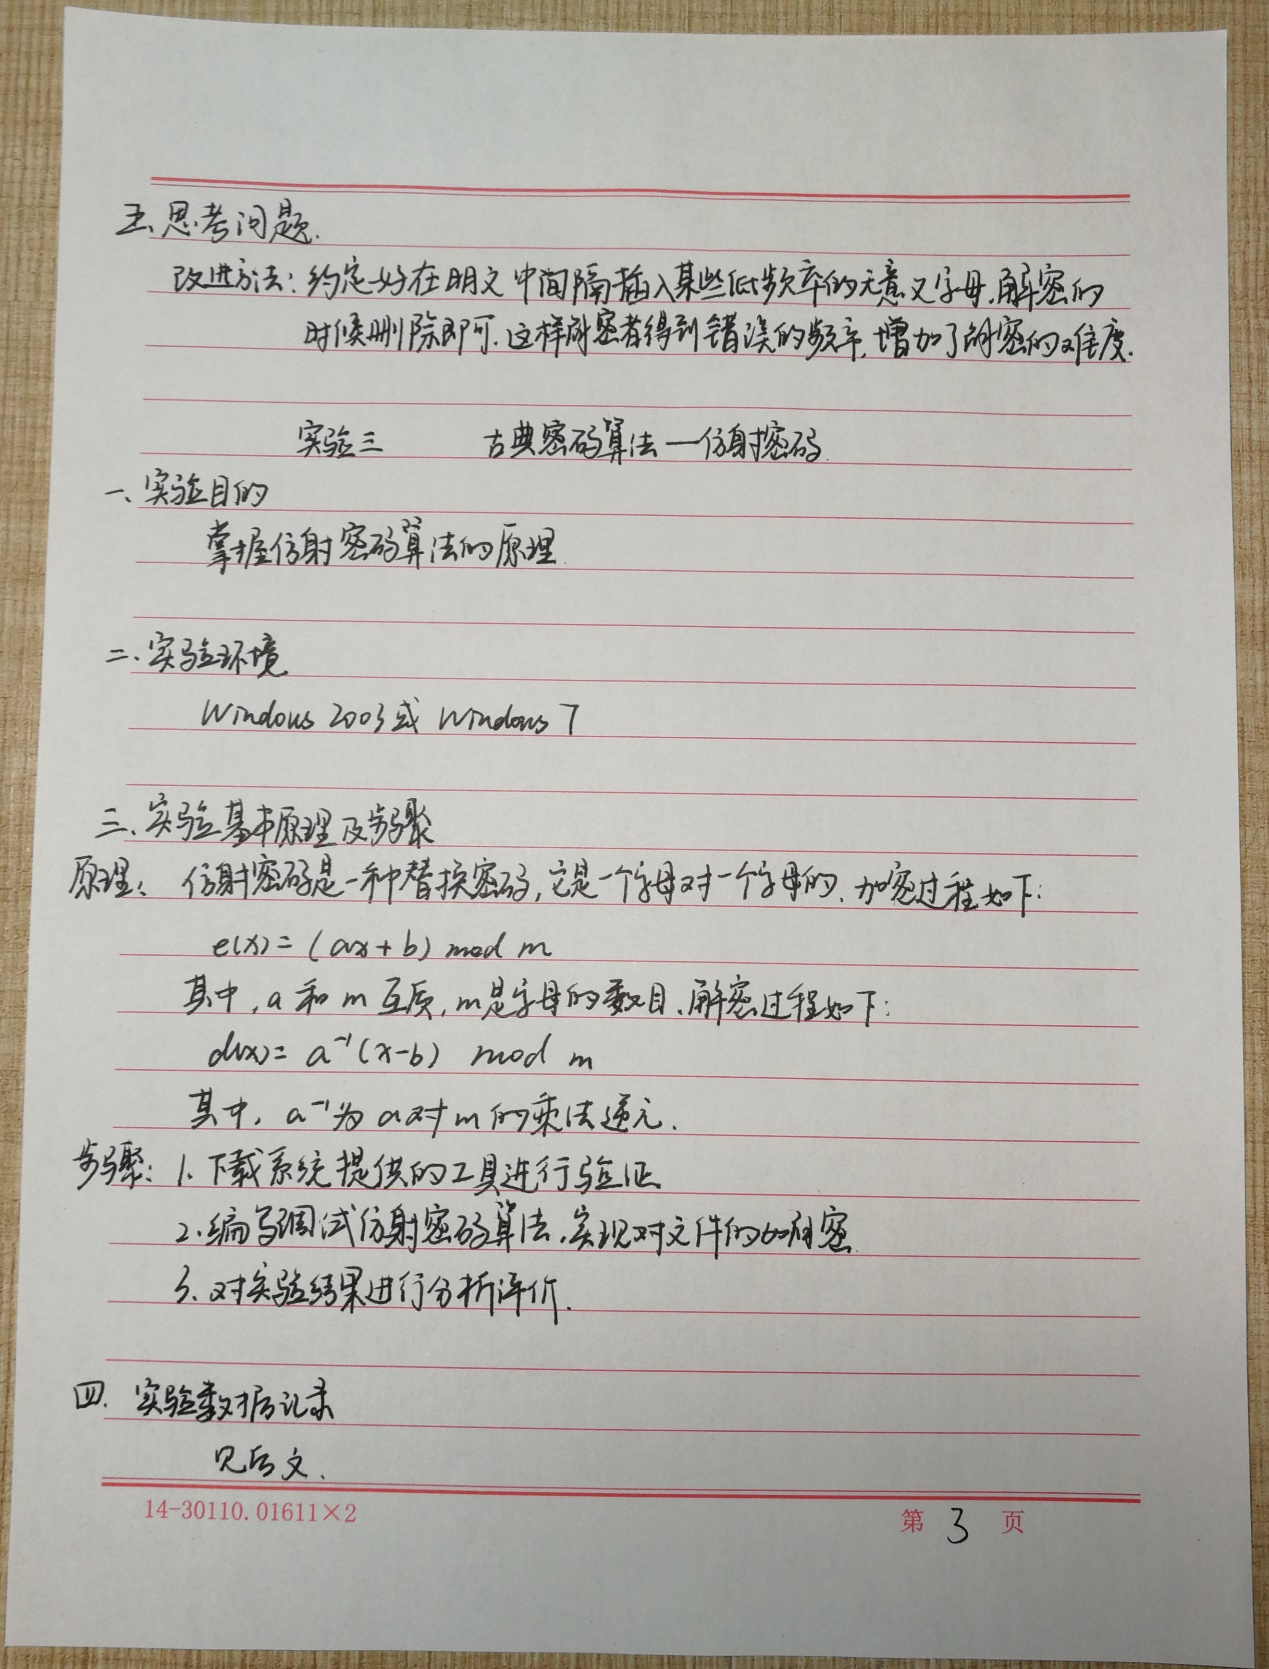 五、思考问题.
改进方法：约定好在明文中间隔插入某些低频率的无意义字母,解密的
时候删除即可.这样解密者得到错误的频率,增加了解密的难度.
实验三 古典密码算法—仿射密码
一、实验目的
掌握仿射密码算法的原理.
二、实验环境
Windows 2003或 Windows 7
三、实验基本原理及步骤
原理： 仿射密码是一种替换密码,它是一个字母对一个字母的.加密过程如下：
e(x)= (ax+b) mod m
其中,a 和 m 互质,m是字母的数目.解密过程如下：
d(x)= a⁻¹(x-b) mod m
其中, a⁻¹为 a对m的乘法逆元.
步骤：1.下载系统提供的工具进行验证
2.编写调试仿射密码算法,实现对文件的加解密
3.对实验结果进行分析评价.
四. 实验数据记录
见后文.
14-30110.01611×2
第 3 页